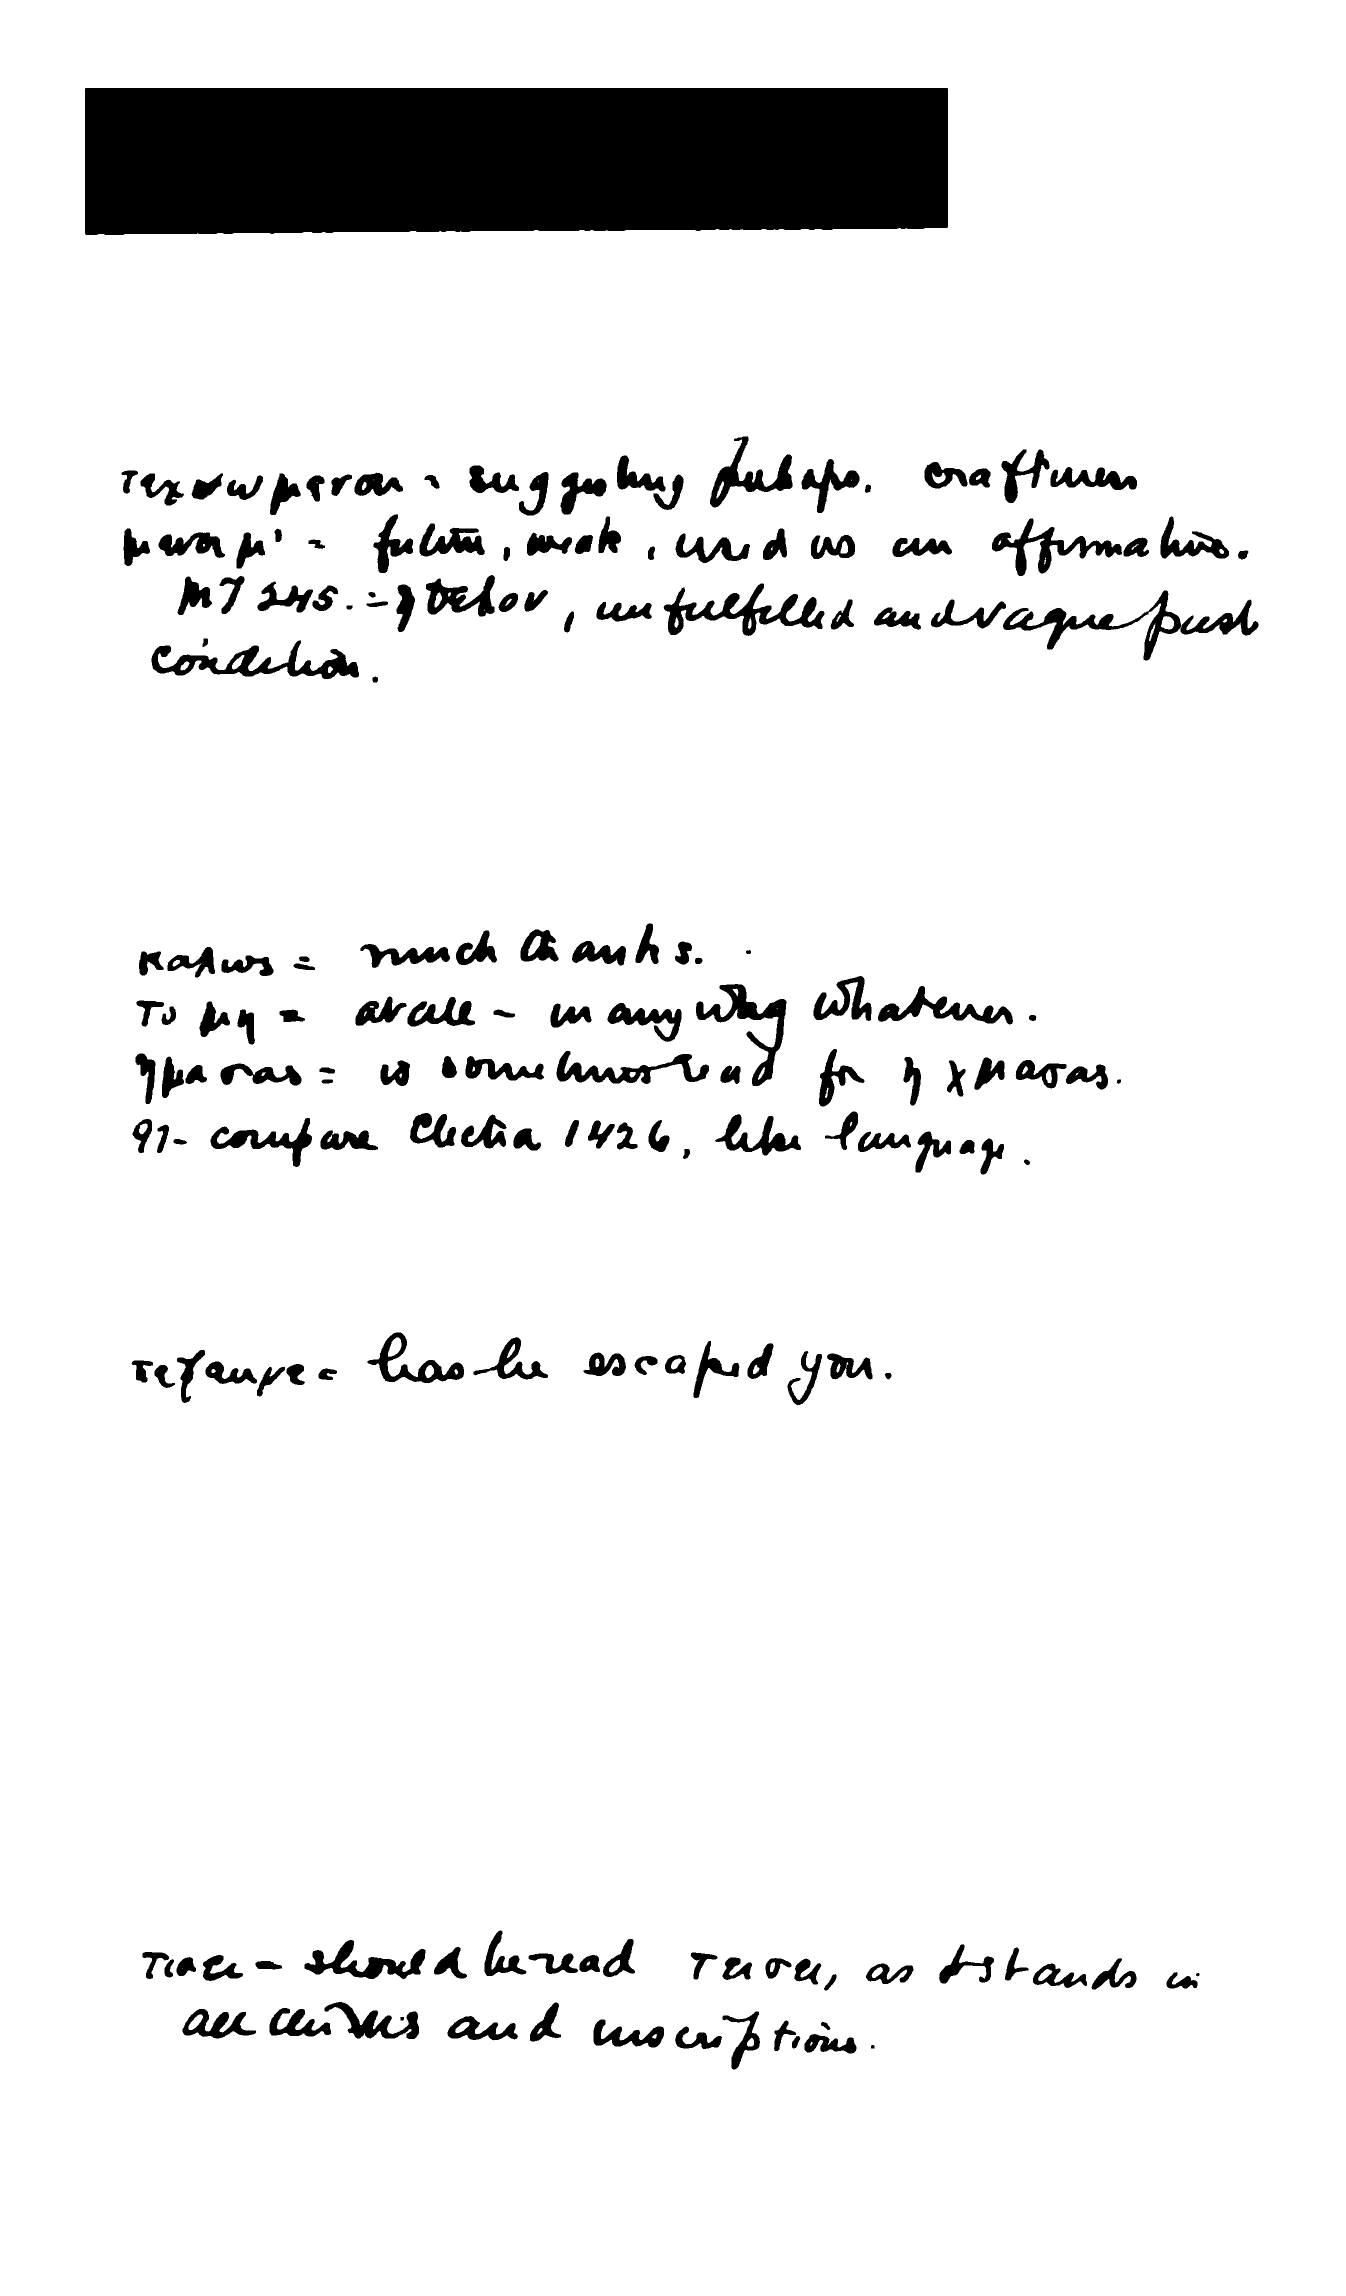 τεχνωμεναι - suggesting perhaps. craftiness
μ' - future, weak, used as an affirmative.
MT 245. = ηθελον, unfulfilled and vague past
condition.
καλως = much thanks.
Το μη = at all - in any way whatever.
ημασας = is sometimes read for η χμασας.
91- compare Electra 1426, like language.
has he escaped you.
τισει - should be read τεισει, as it stands in
all and inscriptions.